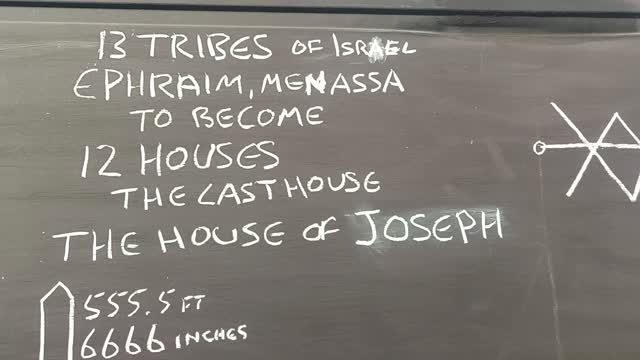 13 TRIBES OF ISRAEL
EPHRAIM, MENASSA
TO BECOME
12 HOUSES
THE LAST HOUSE
THE HOUSE OF JOSEPH
555.5 FT
6666 INCHES